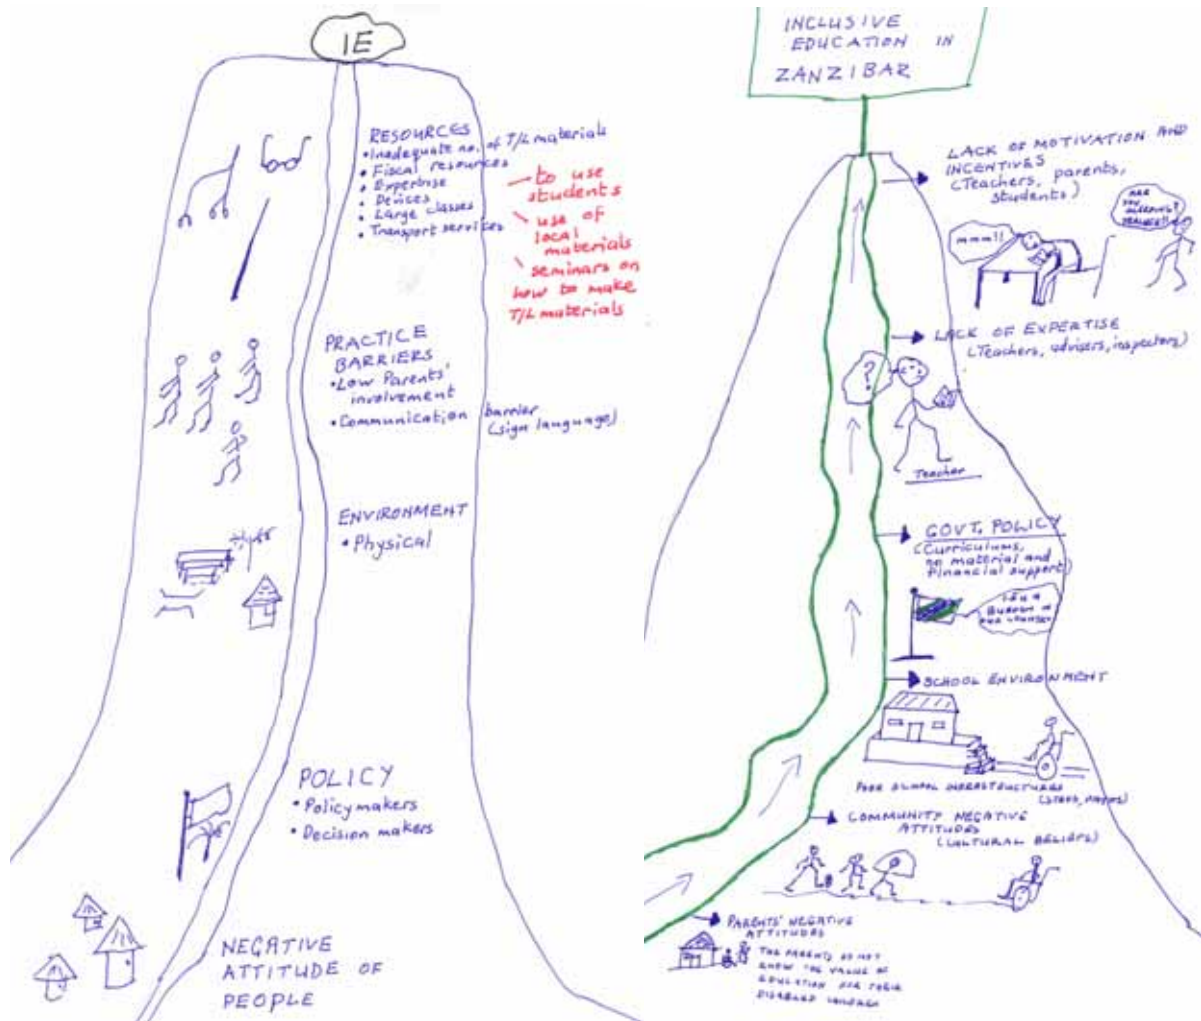 IE
RESOURCES
• Inadequate no. of T/L materials
• Fiscal resources
• Expertise
• Devices
• Large classes
• Transport services
to use
students
use of
local
materials
seminars on
how to make
T/L materials
PRACTICE
BARRIERS
• Low Parents'
involvement
• Communication barrier
(sign language)
ENVIRONMENT
• Physical
POLICY
• Policy makers
• Decision makers
NEGATIVE
ATTITUDE OF
PEOPLE
INCLUSIVE
EDUCATION IN
ZANZIBAR
LACK OF MOTIVATION AND
INCENTIVES
(Teachers, parents,
students)
ARE
YOU
SLEEPING?
mmm!!
LACK OF EXPERTISE
(Teachers, advisers, inspectors)
?
Teacher
GOVT. POLICY
(Curriculums,
no material and
financial support)
BURDEN
SCHOOL ENVIRONMENT
POOR SCHOOL INFRASTRUCTURES
COMMUNITY NEGATIVE
ATTITUDES
(CULTURAL BELIEFS)
PARENTS' NEGATIVE
ATTITUDES
THE PARENTS DO NOT
KNOW THE VALUE OF
EDUCATION FOR THEIR
DISABLED CHILDREN